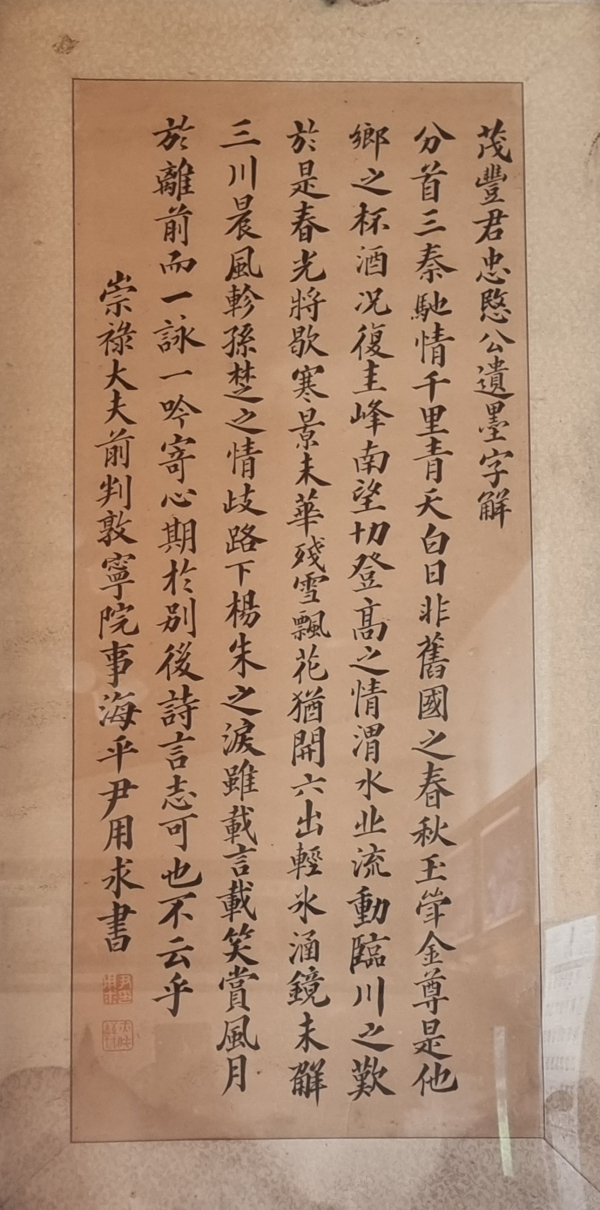 茂豐君忠愍公遺墨字解
分首三秦馳情千里青天白日非舊國之春秋玉斝金尊是他
鄉之杯酒况復圭峰南望切登髙之情渭水北流動臨川之歎
於是春光將歇寒景未華殘雪飄花猶開六出輕氷涵鏡未解
三川晨風軫孫楚之情歧路下楊朱之淚雖載言載笑賞風月
於離前而一詠一吟寄心期於別後詩言志可也不云乎
崇祿大夫前判敦寧院事海平尹用求書